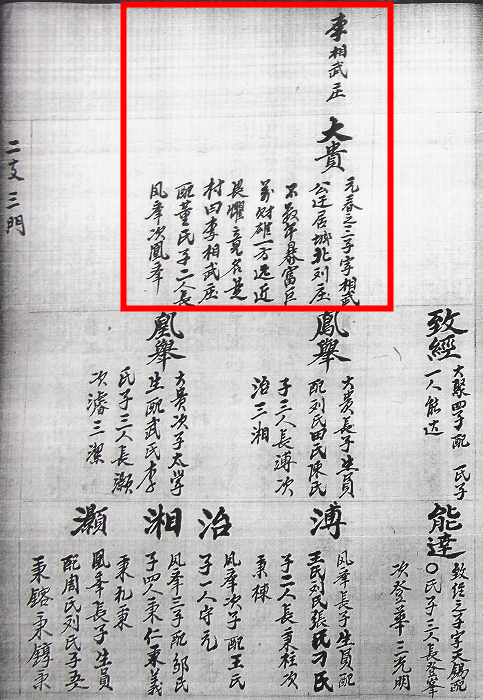 李相武庄
大貴
元春之三子字相武
公迁居城北刘庄
不数年暴富巨
萬财雄一方远近
耀竟名是
村曰李相武庄
配董氏子二人長
凤举次凰举
二支三門
致經
大聚四子配 氏子
一人能达
鳳舉
大贵長子生員
配刘氏田氏陳氏
子三人長溥次
治三湘
凰舉
大贵次子太学
生配武氏李
氏子三人長灏
次濬三潔
能達
致经之子字天锡配
〇氏子三人長登
次登華三光明
溥
凤举長子生員配
王氏刘氏張氏刁氏
子二人長秉桂次
秉棟
治
凤举次子配王氏
子一人守元
湘
凤举三子配邹氏
子四人秉仁秉義
秉礼秉
灝
凰举長子生員
配周氏刘氏子五
秉鎔秉錞秉